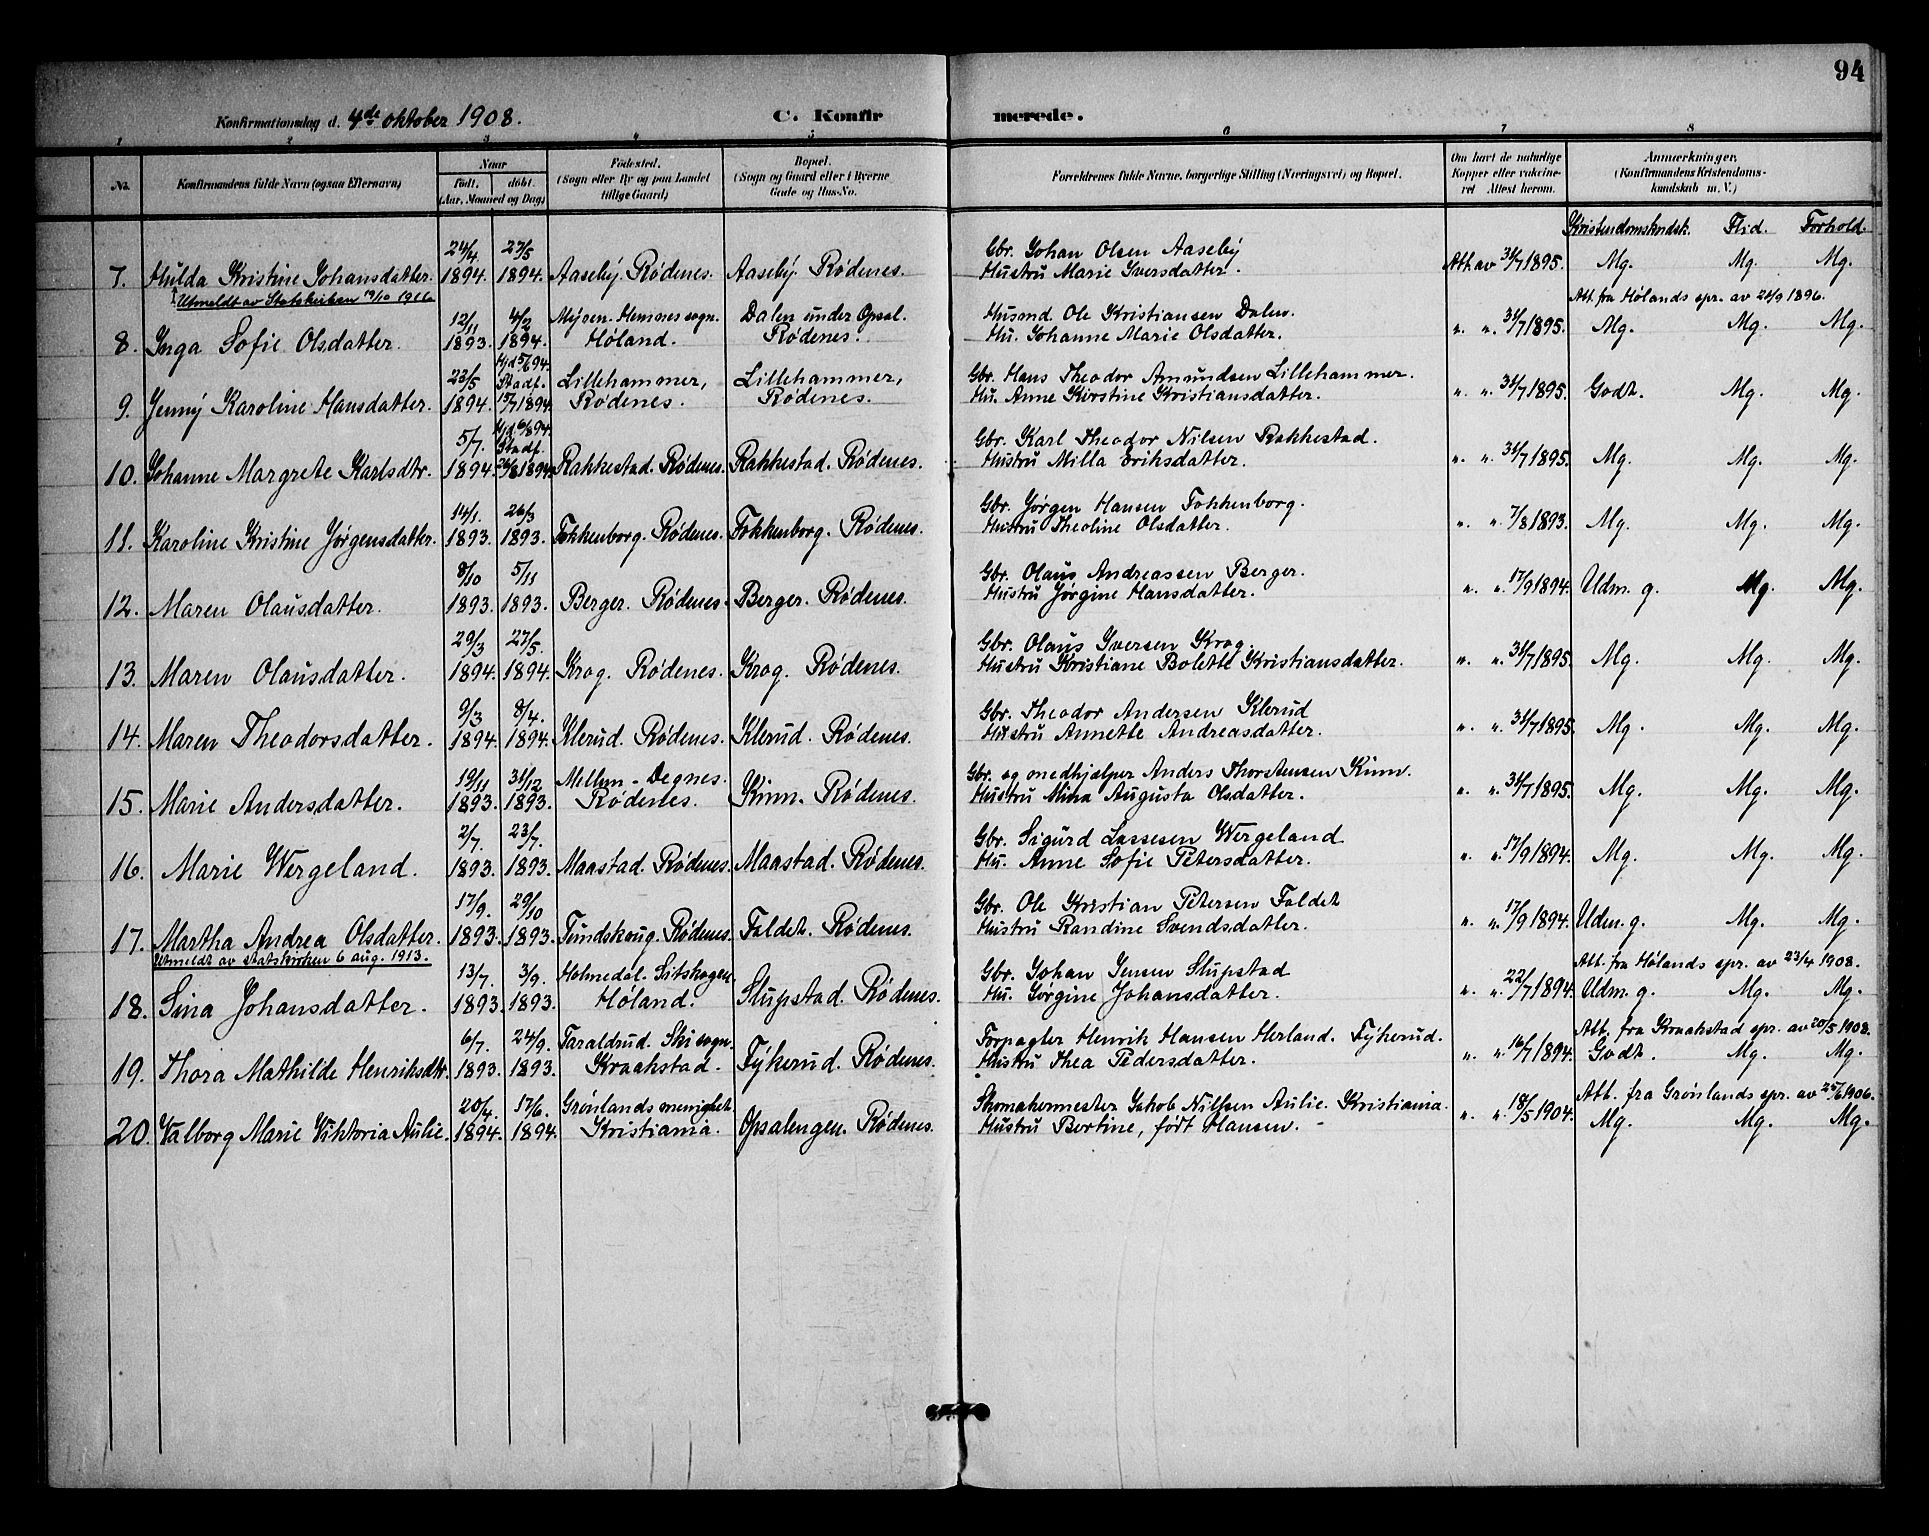 94
Konfirmationsdag d. 4de oktober 1908. C. Konfirmerede.
1 2 3 4 5 6 7 8
No. Konfirmandens fulde Navn (ogsaa Efternavn) Naar født. døbt. (Aar, Maaned og Dag) Fødested. (Sogn eller By og paa Landet tillige Gaard) Bopæl. (Sogn og Gaard eller i Byerne Gade og Hus-No. Forældrenes fulde Navne, borgerlige Stilling (Næringsvei) og Bopæl. Om havt de naturlige Kopper eller vaksineret Attest herom. Anmærkninger. (Konfirmandens Kristendomskundskab m. V.)
Kristendomskndsk. Flid. Forhold.
24/4 27/5 Gbr. Johan Olsen Aaseby
7. Hulda Kristine Johansdatter. 1894. 1894. Aaseby. Rødenes. Aaseby. Rødenes. Hustru Marie Iversdatter. Att. av 31/7 1895. Mg. Mg. Mg.
Utmeldt av Statskirken 19/10 1916
Att. fra Hølands spr. av 21/9 1896.
12/11 4/2 Mysen. Hemnes sogn. Dalen under Opsal. Husmd Ole Kristiansen Dalen.
8. Inga Sofie Olsdatter. 1893. 1894. Høland. Rødenes. Hu. Johanne Marie Olsdatter. " " 31/7 1895. Mg. Mg. Mg.
23/5 Hjd 5/6 94. Stadf. Lillehammer, Lillehammer, Gbr. Hans Theodor Amundsen Lillehammer.
9. Jenny Karoline Hansdatter. 1894. 15/7 1894. Rødenes. Rødenes. Hu. Anne Kirstine Kristiansdatter. " " 31/7 1895. Godt. Mg. Mg.
5/7. Hjd. 6/8 94. Stadf. Gbr. Karl Theodor Nilsen Rakkestad.
10. Johanne Margrete Karlsdtr. 1894. 26/8 1894. Rakkestad. Rødenes. Rakkestad. Rødenes. Hustru Milla Eriksdatter. " " 31/7 1895. Mg. Mg. Mg.
14/1. 26/3 Gbr. Jørgen Hansen Fokkenborg.
11. Karoline Kristine Jørgensdatter. 1893. 1893. Fokkenborg. Rødenes. Fokkenborg. Rødenes. Hustru Theoline Olsdatter. " " 7/8 1893. Mg. Mg. Mg.
8/10 5/11 Gbr. Olaus Andreassen Berger.
12. Maren Olausdatter. 1893. 1893. Berger. Rødenes. Berger. Rødenes. Hustru Jørgine Hansdatter. " " 17/9 1894. Udm. g. Mg. Mg.
29/3 27/5. Gbr. Olaus Iversen Krog.
13. Maren Olausdatter. 1894. 1894. Krog. Rødenes. Krog. Rødenes. Hustru Kristiane Bolette Kristiansdatter. " " 31/7 1895. Mg. Mg. Mg.
9/3 8/4. Gbr. Theodor Andersen Klerud
14. Maren Theodorsdatter. 1894. 1894. Klerud. Rødenes. Klerud. Rødenes. Hustru Annette Andreasdatter. " " 31/7 1895. Mg. Mg. Mg.
19/11 31/12 Mellem-Degnes. Gbr. og medhjælper Anders Thorstensen Kinn.
15. Marie Andersdatter. 1893. 1893. Rødenes. Kinn. Rødenes. Hustru Mina Augusta Olsdatter. " " 31/7 1895. Mg. Mg. Mg.
2/7. 23/7. Gbr. Sigurd Lassesen Wergeland
16. Marie Wergeland. 1893. 1893. Maastad. Rødenes. Maastad. Rødenes. Hu. Anne Sofie Petersdatter. " " 17/9 1894. Mg. Mg. Mg.
17/9. 29/10 Gbr. Ole Kristian Petersen Faldet
17. Martha Andrea Olsdatter. 1893. 1893. Tundskoug. Rødenes. Faldet. Rødenes. Hustru Randine Svendsdatter. " " 17/9 1894. Udm. g. Mg. Mg.
Utmeldt av statskirken 6 aug. 1913.
Att. fra Hølands spr. av 23/4 1908.
13/7. 3/9. Holmedal. Sitskogen. Gbr. Johan Jensen Slupstad
18. Sina Johansdatter. 1893. 1893. Høland. Slupstad. Rødenes. Hu. Gørgine Johansdatter. " " 22/7 1894. Udm. g. Mg. Mg.
6/7. 24/9. Taraldrud. Ski sogn. Forpagter Henrik Hansen Herland. Fykerud. Att. fra Kraakstad spr. av 20/5 1908.
19. Thora Mathilde Henriksdtr. 1893. 1893. Kraakstad. Fykerud. Rødenes. Hustru Thea Pedersdatter. " " 16/7 1894. Godt. Mg. Mg.
20/4. 17/6. Grønlands menighet. Skomakermester Jakob Nilsen Aulie. Kristiania. Att. fra Grønlands spr. av 25/6 1906.
20. Valborg Marie Viktoria Aulie. 1894. 1894. Kristiania. Opsalengen. Rødenes. Hustru Bertine, født Hansen. " " 18/5 1904. Mg. Mg. Mg.